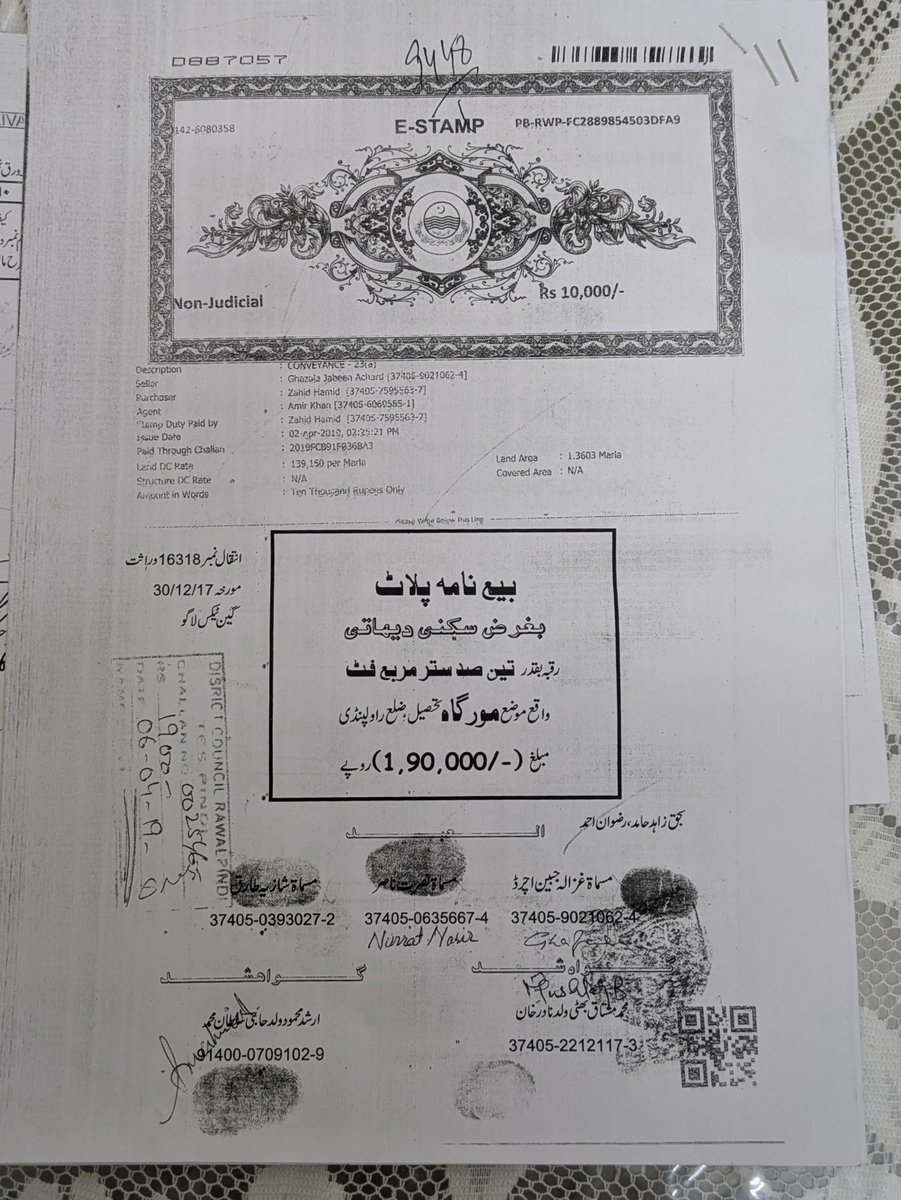 D887057
9448
142-6080358
E-STAMP
PB-RWP-FC2889854503DFA9
Non-Judicial
Rs 10,000/-
Description : CONVEYANCE - 23(a)
Seller : Ghazala Jabeen Achard [37405-9021062-4]
Purchaser : Zahid Hamid [37405-7595563-7]
Agent : Amir Khan [37405-6060585-1]
Stamp Duty Paid by : Zahid Hamid [37405-7595563-7]
Issue Date : 02-Apr-2019, 02:25:21 PM
Paid Through Challan : 2019FCB91FB36BA3
Land DC Rate : 139,150 per Marla
Land Area : 1.3603 Marla
Structure DC Rate : N/A
Covered Area : N/A
Amount in Words : Ten Thousand Rupees Only
Please Write Below This Line
انتقال نمبر 16318 وراثت
مورخہ 30/12/17
گین ٹیکس لاگو
بیع نامہ پلاٹ
بغرض سکنی دیہاتی
رقبہ بقدر تین صد ستر مربع فٹ
واقع موضع مورگاہ تحصیل و ضلع راولپنڈی
مبلغ (1,90,000/-) روپے
DISRICT COUNCIL RAWALPINDI
CHALLAN NO
RS 19000/-
DATE 06-04-19
بحق زاہد حامد، رضوان احمد
العبد
مسماة غزالہ جبین اچرڈ
مسماة نصرت ناصر
مسماة شازیہ طارق
37405-9021062-4
37405-0635667-4
37405-0393027-2
Nusrat Nasir
گواہ شد
گواہ شد
محمد مشتاق بھٹی ولد نادر خان
ارشد محمود ولد حاجی سلطان محمد
37405-2212117-3
91400-0709102-9